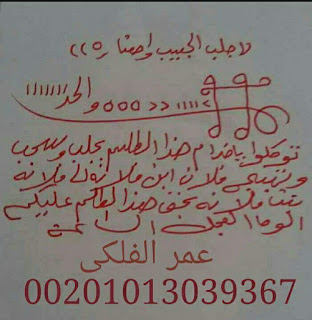 لاجلب الحبيب واحضاره
والحد
توكلوا ياخدام هذا الطلسم بجلب وسحب
فلان ابن فلانة الى فلانة
بنت فلانه بحق هذا الطلسم عليكم
الوحا العجل الساعة
عمر الفلكى
00201013039367